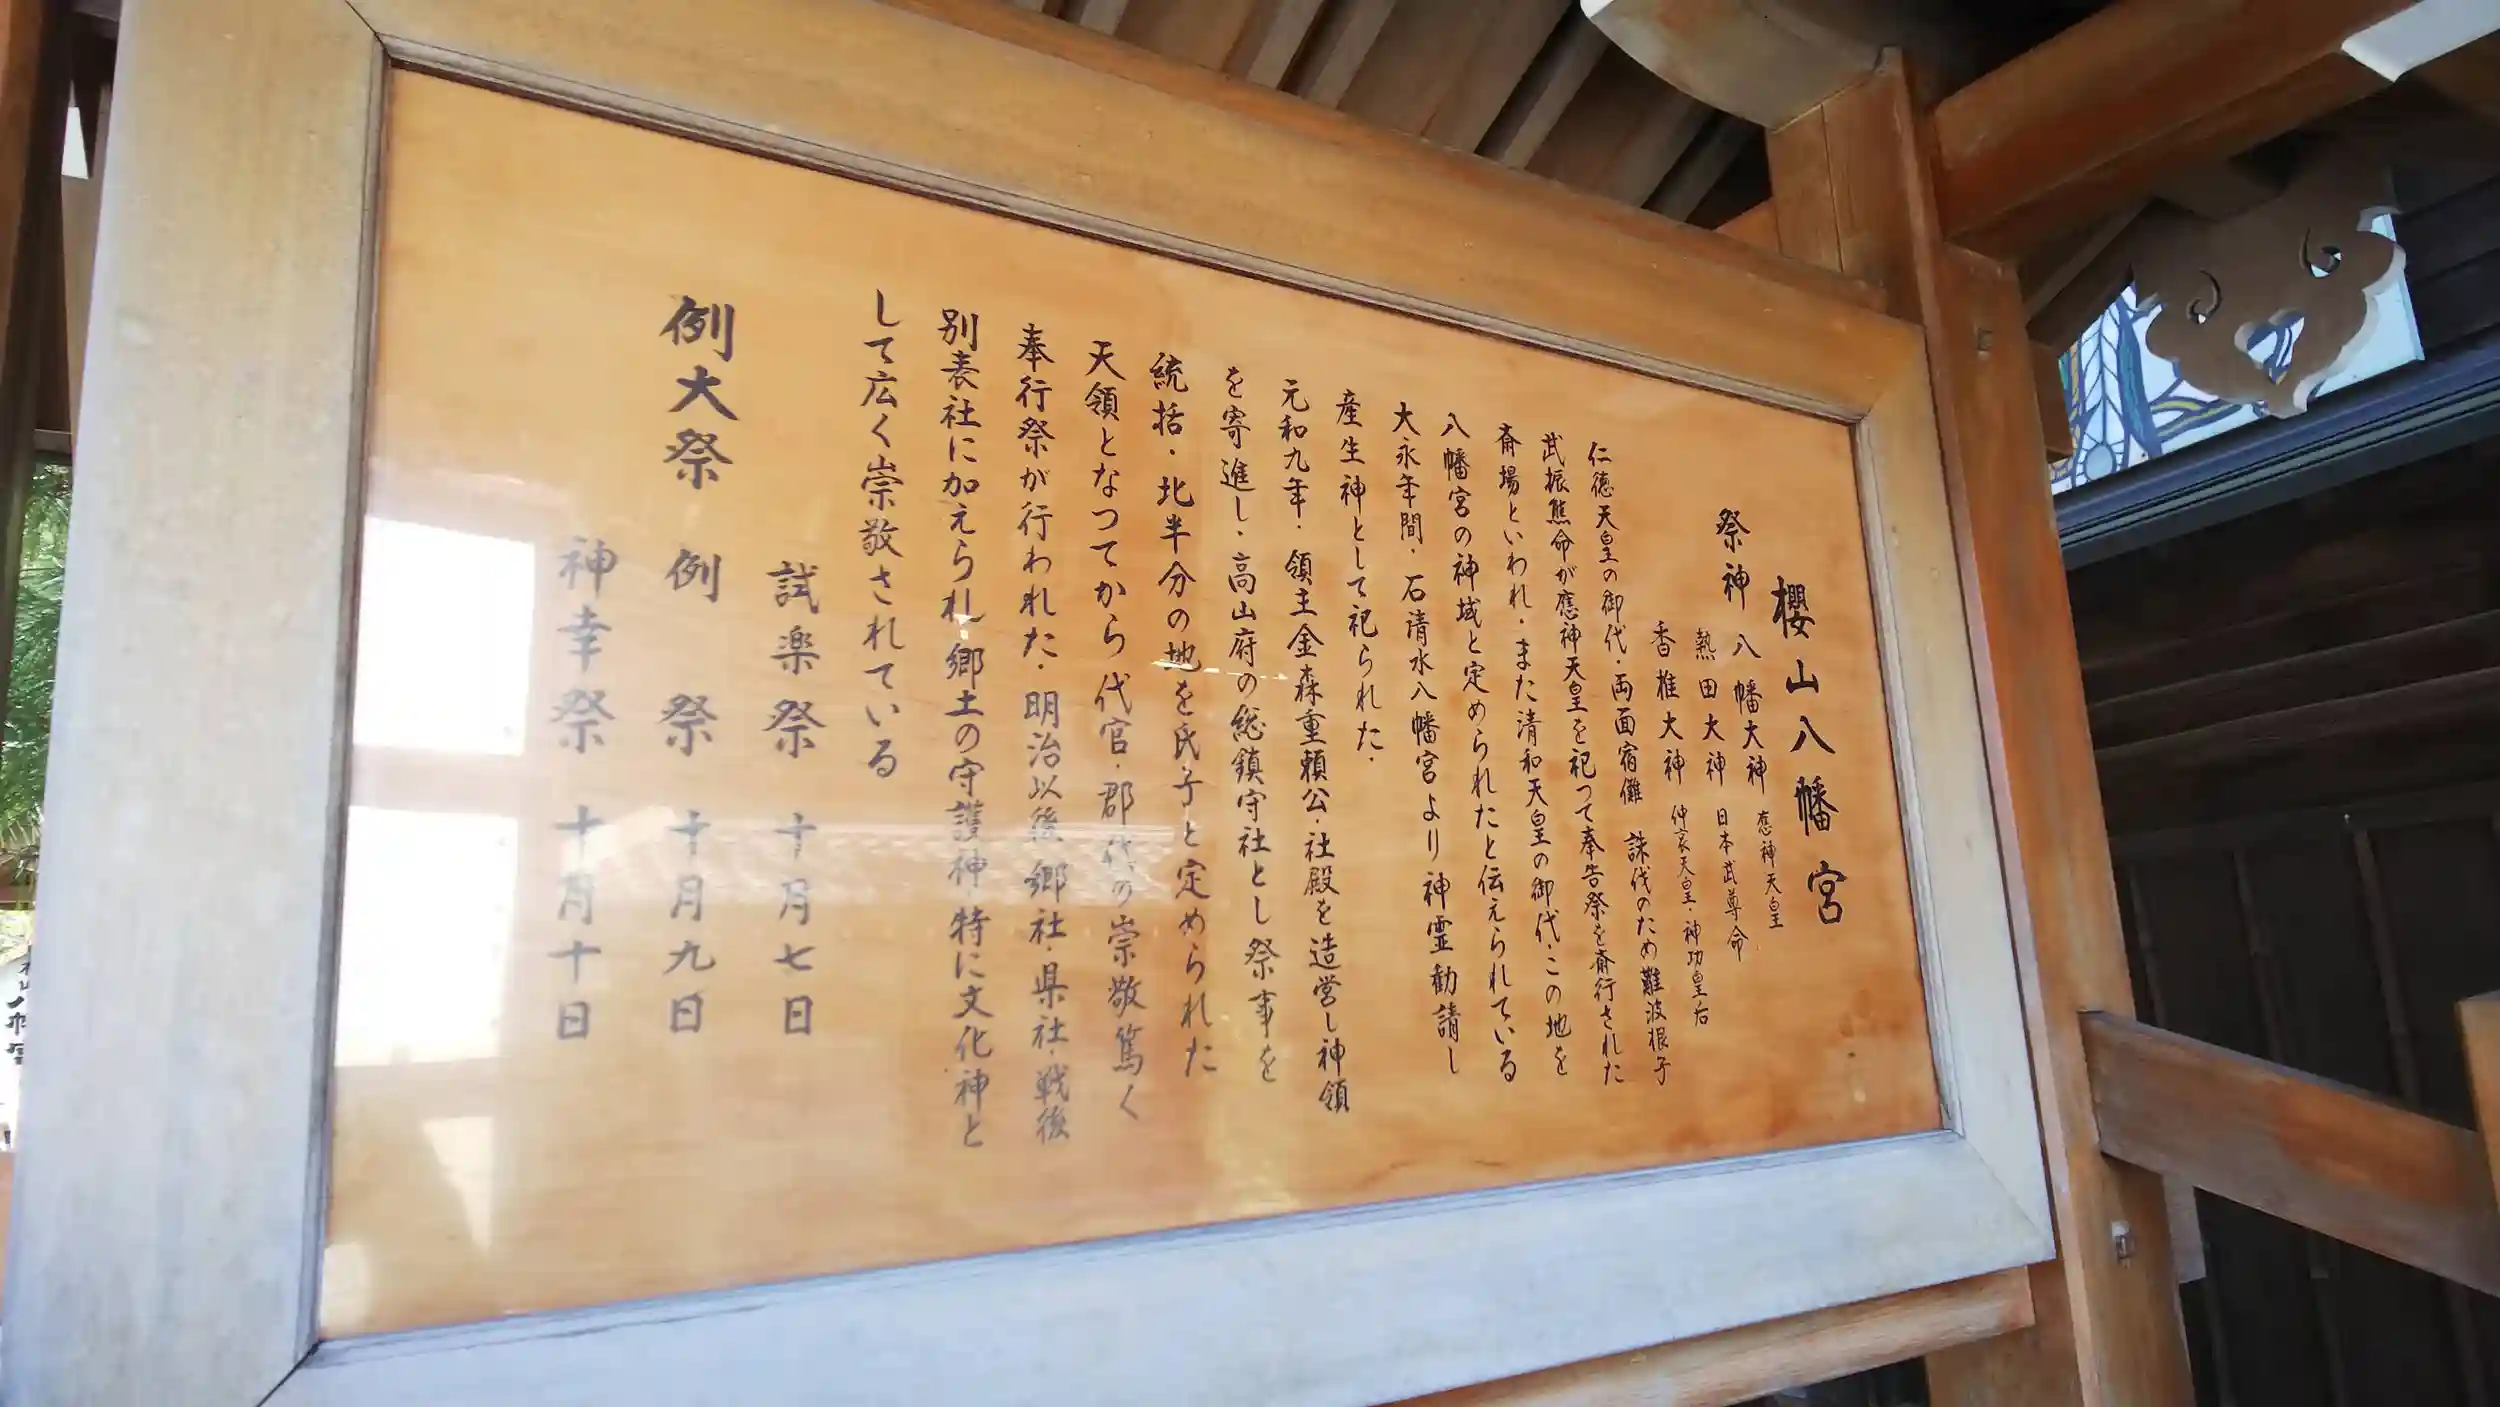 櫻山八幡宮
祭神 八幡大神 應神天皇
熱田大神 日本武尊命
香椎大神 仲哀天皇・神功皇后
仁徳天皇の御代・両面宿儺 誅伐のため難波根子
武振熊命が應神天皇を祀つて奉告祭を斎行された
斎場といわれ・また清和天皇の御代・この地を
八幡宮の神域と定められたと伝えられている
大永年間・石清水八幡宮より神霊勧請し
産生神として祀られた・
元和九年・領主金森重頼公・社殿を造営し神領
を寄進し・高山府の総鎮守社とし祭事を
統括・北半分の地を氏子と定められた
天領となつてから代官・郡代の崇敬篤く
奉行祭が行われた・明治以後郷社・県社・戦後
別表社に加えられ郷土の守護神特に文化神と
して広く崇敬されている
例大祭
試楽祭 十月七日
例祭 十月九日
神幸祭 十月十日